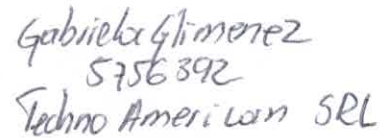 Gabriela Glimenez
5756392
Techno American SRL